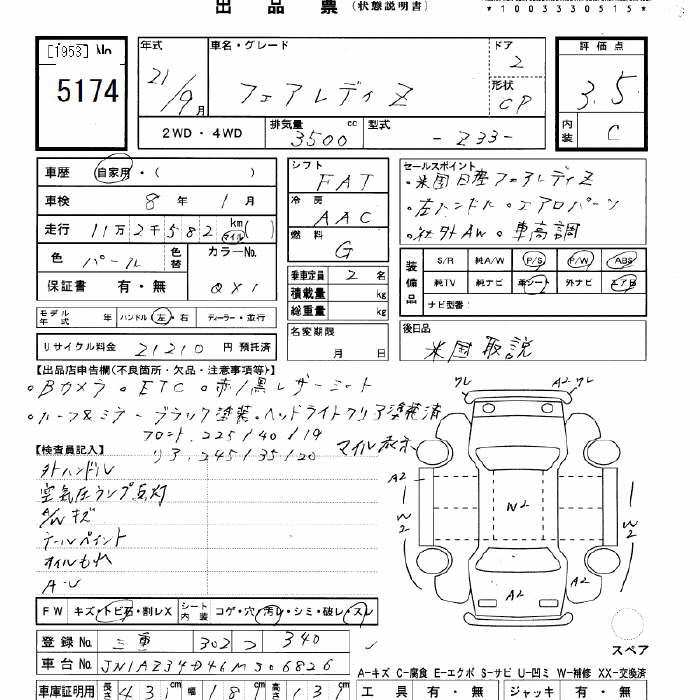 出品票 (状態説明書)
*1003330515*
[1953] No 5174
年式 21/9月
車名・グレード フェアレディZ
ドア 2
形状 CP
評価点 3.5
内装 C
2WD・4WD
排気量 3500 cc
型式 -Z33-
車歴 自家用・( )
車検 8年 1月
走行 11万2千582 km (マイル)
色 パール
色替
カラーNo. QX1
保証書 有・無
シフト FAT
冷房 AAC
燃料 G
乗車定員 2 名
積載量 kg
総重量 kg
名変期限 月 日
セールスポイント
・米国日産フェアレディZ
・左ハンドル ・エアロパーツ
・社外AW ・車高調
装備品 S/R 純A/W P/S P/W ABS
純TV 純ナビ 革シート 外ナビ エアB
ナビ型番:
モデル年式 年 ハンドル 左・右 ディーラー・並行
リサイクル料金 21210 円 預託済
後日品 米国取説
【出品店申告欄(不良箇所・欠品・注意事項等)】
・Bカメラ ・ETC ・赤/黒レザーシート
・ルーフ&ミラーブラック塗装・ヘッドライトクリア塗装済
フロント.225/40/19
リア.245/35/20
マイル表示
【検査員記入】
外ハンドル
空気圧ランプ点灯
A/Wキズ
テールペイント
オイルもれ
ワレ
A2 ワレ
A2
W2
W2
W2
A2
A2
FW キズ・トビ石・割レX
シート内装 コゲ・穴・汚レ・シミ・破レ・スレ
登録No. 三重 302 つ 340
車台No. JN1AZ34D46M306826
スペア
A-キズ C-腐食 E-エクボ S-サビ U-凹ミ W-補修 XX-交換済
車庫証明用 長さ 431 cm 幅 181 cm 高さ 131 cm
工具 有・無 ジャッキ 有・無